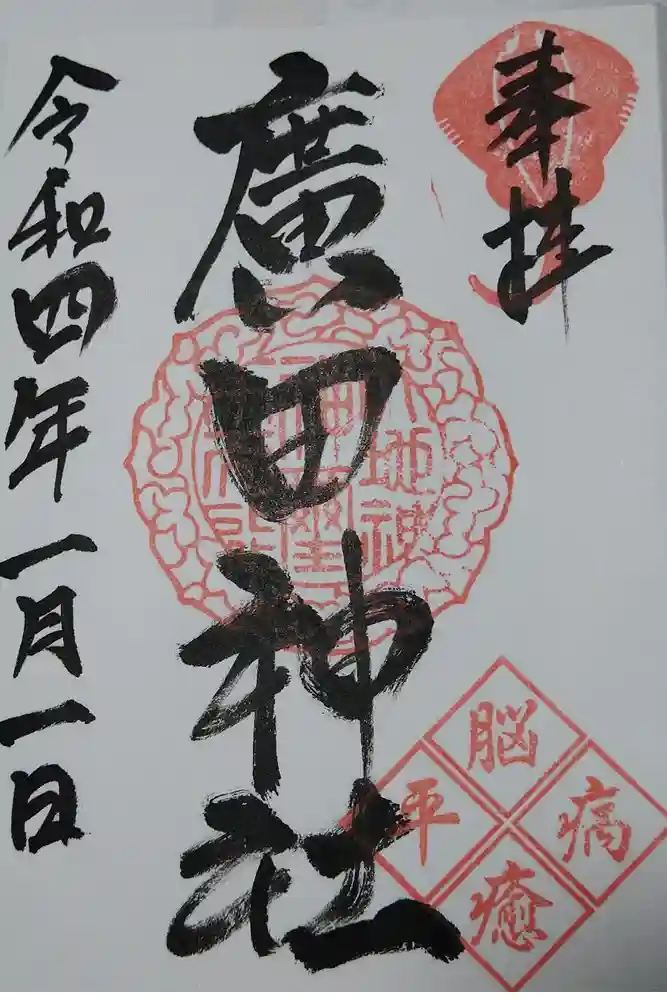 奉拝
廣田神社
令和四年一月一日
脳
病
平
癒